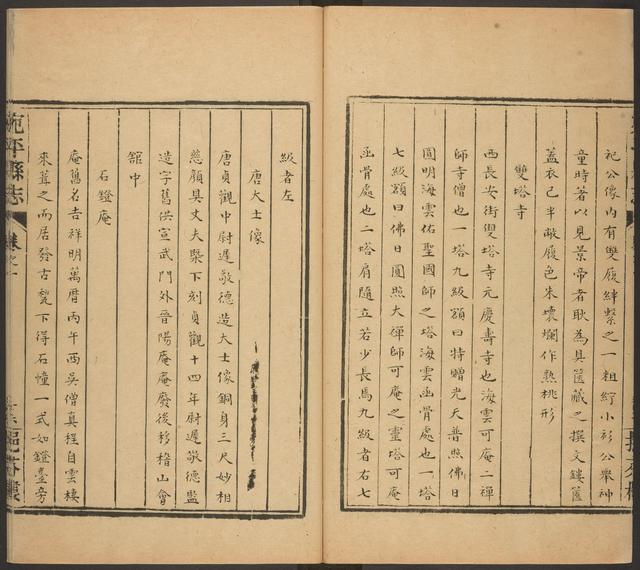 祀公像內有雙履絆繫之一粗紵小衫公舉神
童時著以見景帝者耿為具篋藏之撰文鏤篋
蓋衣已半敝履色朱壞爛作熟桃形
雙塔寺
西長安街雙塔寺元慶壽寺也海雲可庵二禪
師寺僧也一塔九級額曰特贈光天普照佛日
圓明海雲佑聖國師之塔海雲函骨處也一塔
七級額曰佛日圓照大禪師可庵之靈塔可庵
函骨處也二塔肩隨立若少長焉九級者右七
級者左
唐大士像
唐貞觀中尉遲敬德造大士像銅身三尺妙相
慈顏具丈夫槩下刻貞觀十四年尉遲敬德監
造字舊供宣武門外晉陽庵庵廢後移稽山會
舘中
石鐙庵
庵舊名吉祥明萬曆丙午西吳僧真程自雲棲
來葺之而居發古甃下得石幢一式如鐙臺旁
宛平縣志